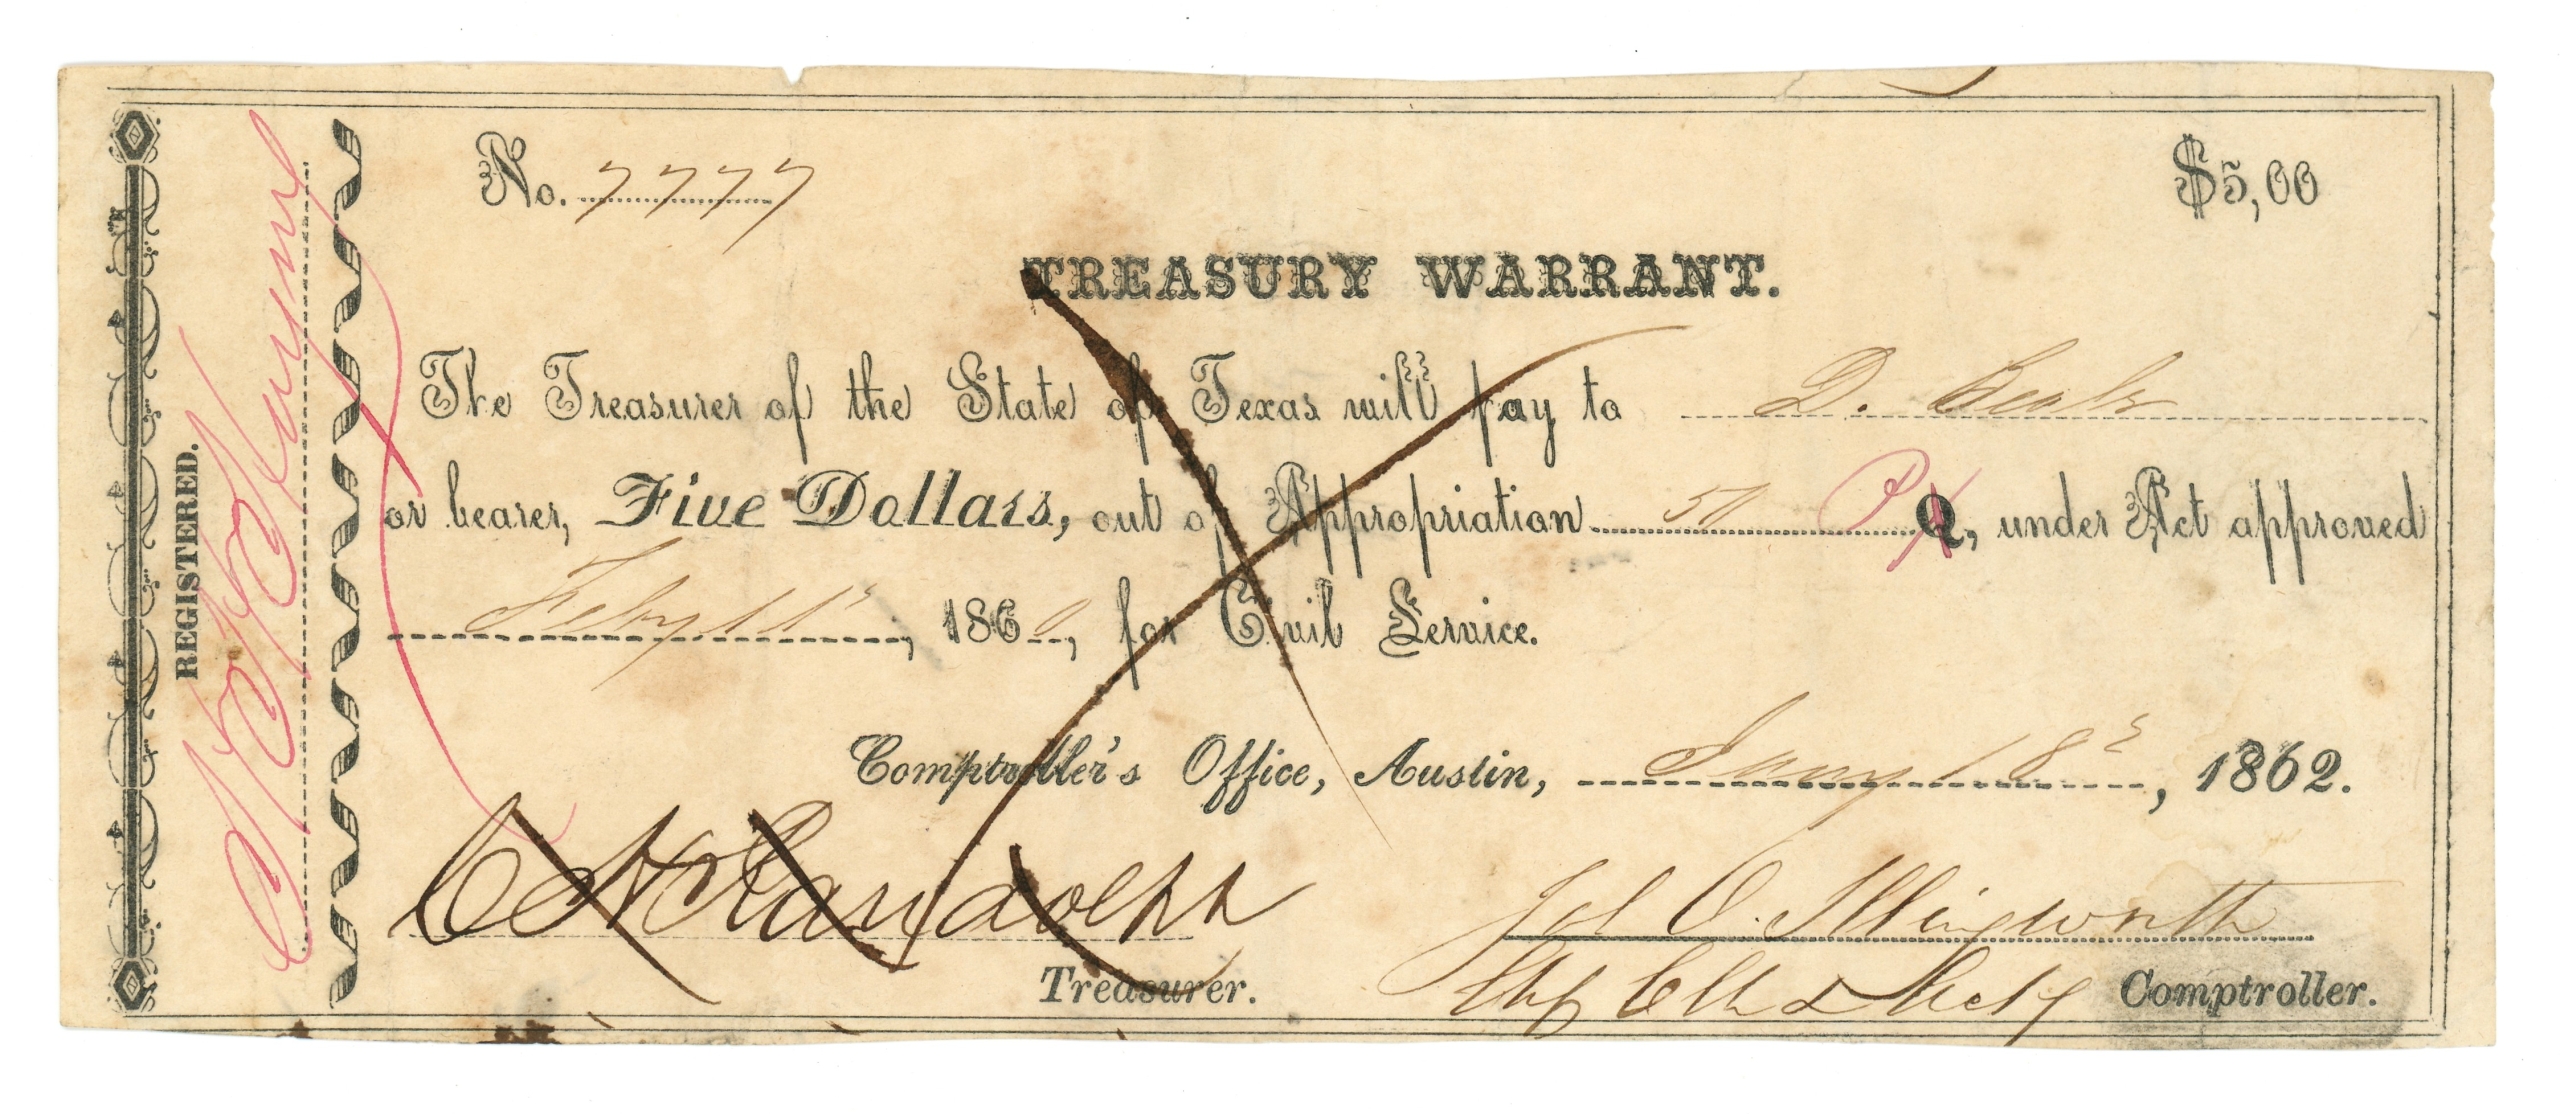 No. 7777
$5,00
TREASURY WARRANT.
The Treasurer of the State of Texas will pay to D.
or bearer, Five Dollars, out of Appropriation 50 P Q, under Act approved
Feby 11, 1860, for Civil Service.
Comptroller's Office, Austin, Jany 18, 1862.
C H Randolph
Treasurer.
Jos O. Illingworth
Chf Clk & Actg Comptroller.
REGISTERED.